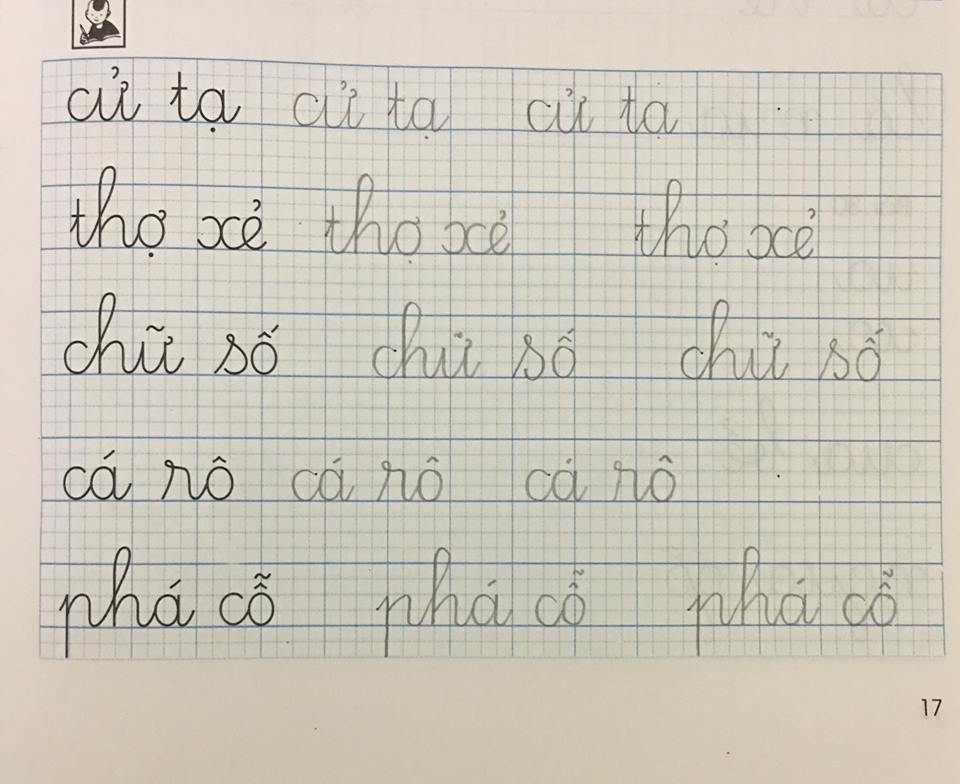 cử tạ cử tạ cử tạ
thợ xẻ thợ xẻ thợ xẻ
chữ số chữ số chữ số
cá rô cá rô cá rô
phá cỗ phá cỗ phá cỗ
17